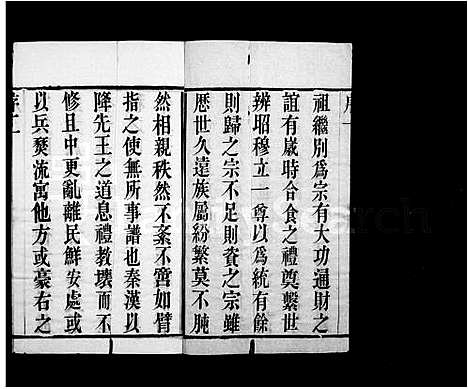 祖繼別爲宗有大功通財之
誼有歲時合食之禮奠繫世
辨昭穆立一尊以爲統有餘
則歸之宗不足則資之宗雖
歷世久遠族屬紛繁莫不肫
然相親秩然不紊不啻如臂
指之使無所事譜也秦漢以
降先王之道息禮教壞而不
修且中更亂離民鮮安處或
以兵燹流寓他方或豪右之
序二